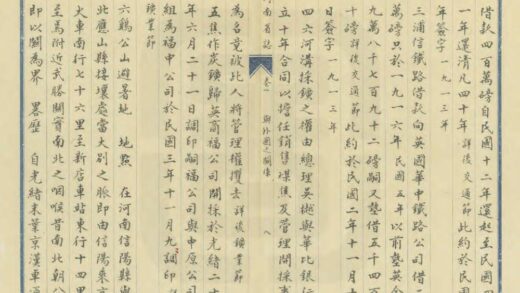 借款四百萬磅自民國十二年還起至民國四
一年還清凡四十年 詳後交通節 此約於民國
年簽字一九一三年
三浦信鐵路借款向英國華中鐵路公司借二
萬磅只於一九一六年民國五年以前墊英金
九萬八千七百九十二磅嗣又墊借五千四百
十磅詳後交通節此約於民國二年十一月十
日簽字一九一三年
河南省志 卷一 外國之關係 八
四六河溝採鑛之權由總理吳樾與華比銀行
立十年合同以擔任銷售煤焦及管理開採事
為名竟被比人將管理權攫去 詳後鑛業節
五焦作炭鑛歸英商福公司開採於光緒二十
年六月二十一日調印嗣福公司與中原公司
組為福中公司於民國三年十一月九調印
鑛業節
六鷄公山避暑地 地點 在河南信陽縣與
北應山縣接壤處當大別之脈即由信陽乘京
火車南行七十六里至新店車站東行十四里
至焉附近武勝關實南北之咽喉昔南北朝分
即以關為界 畧歷 自光緒末葉京漢車通